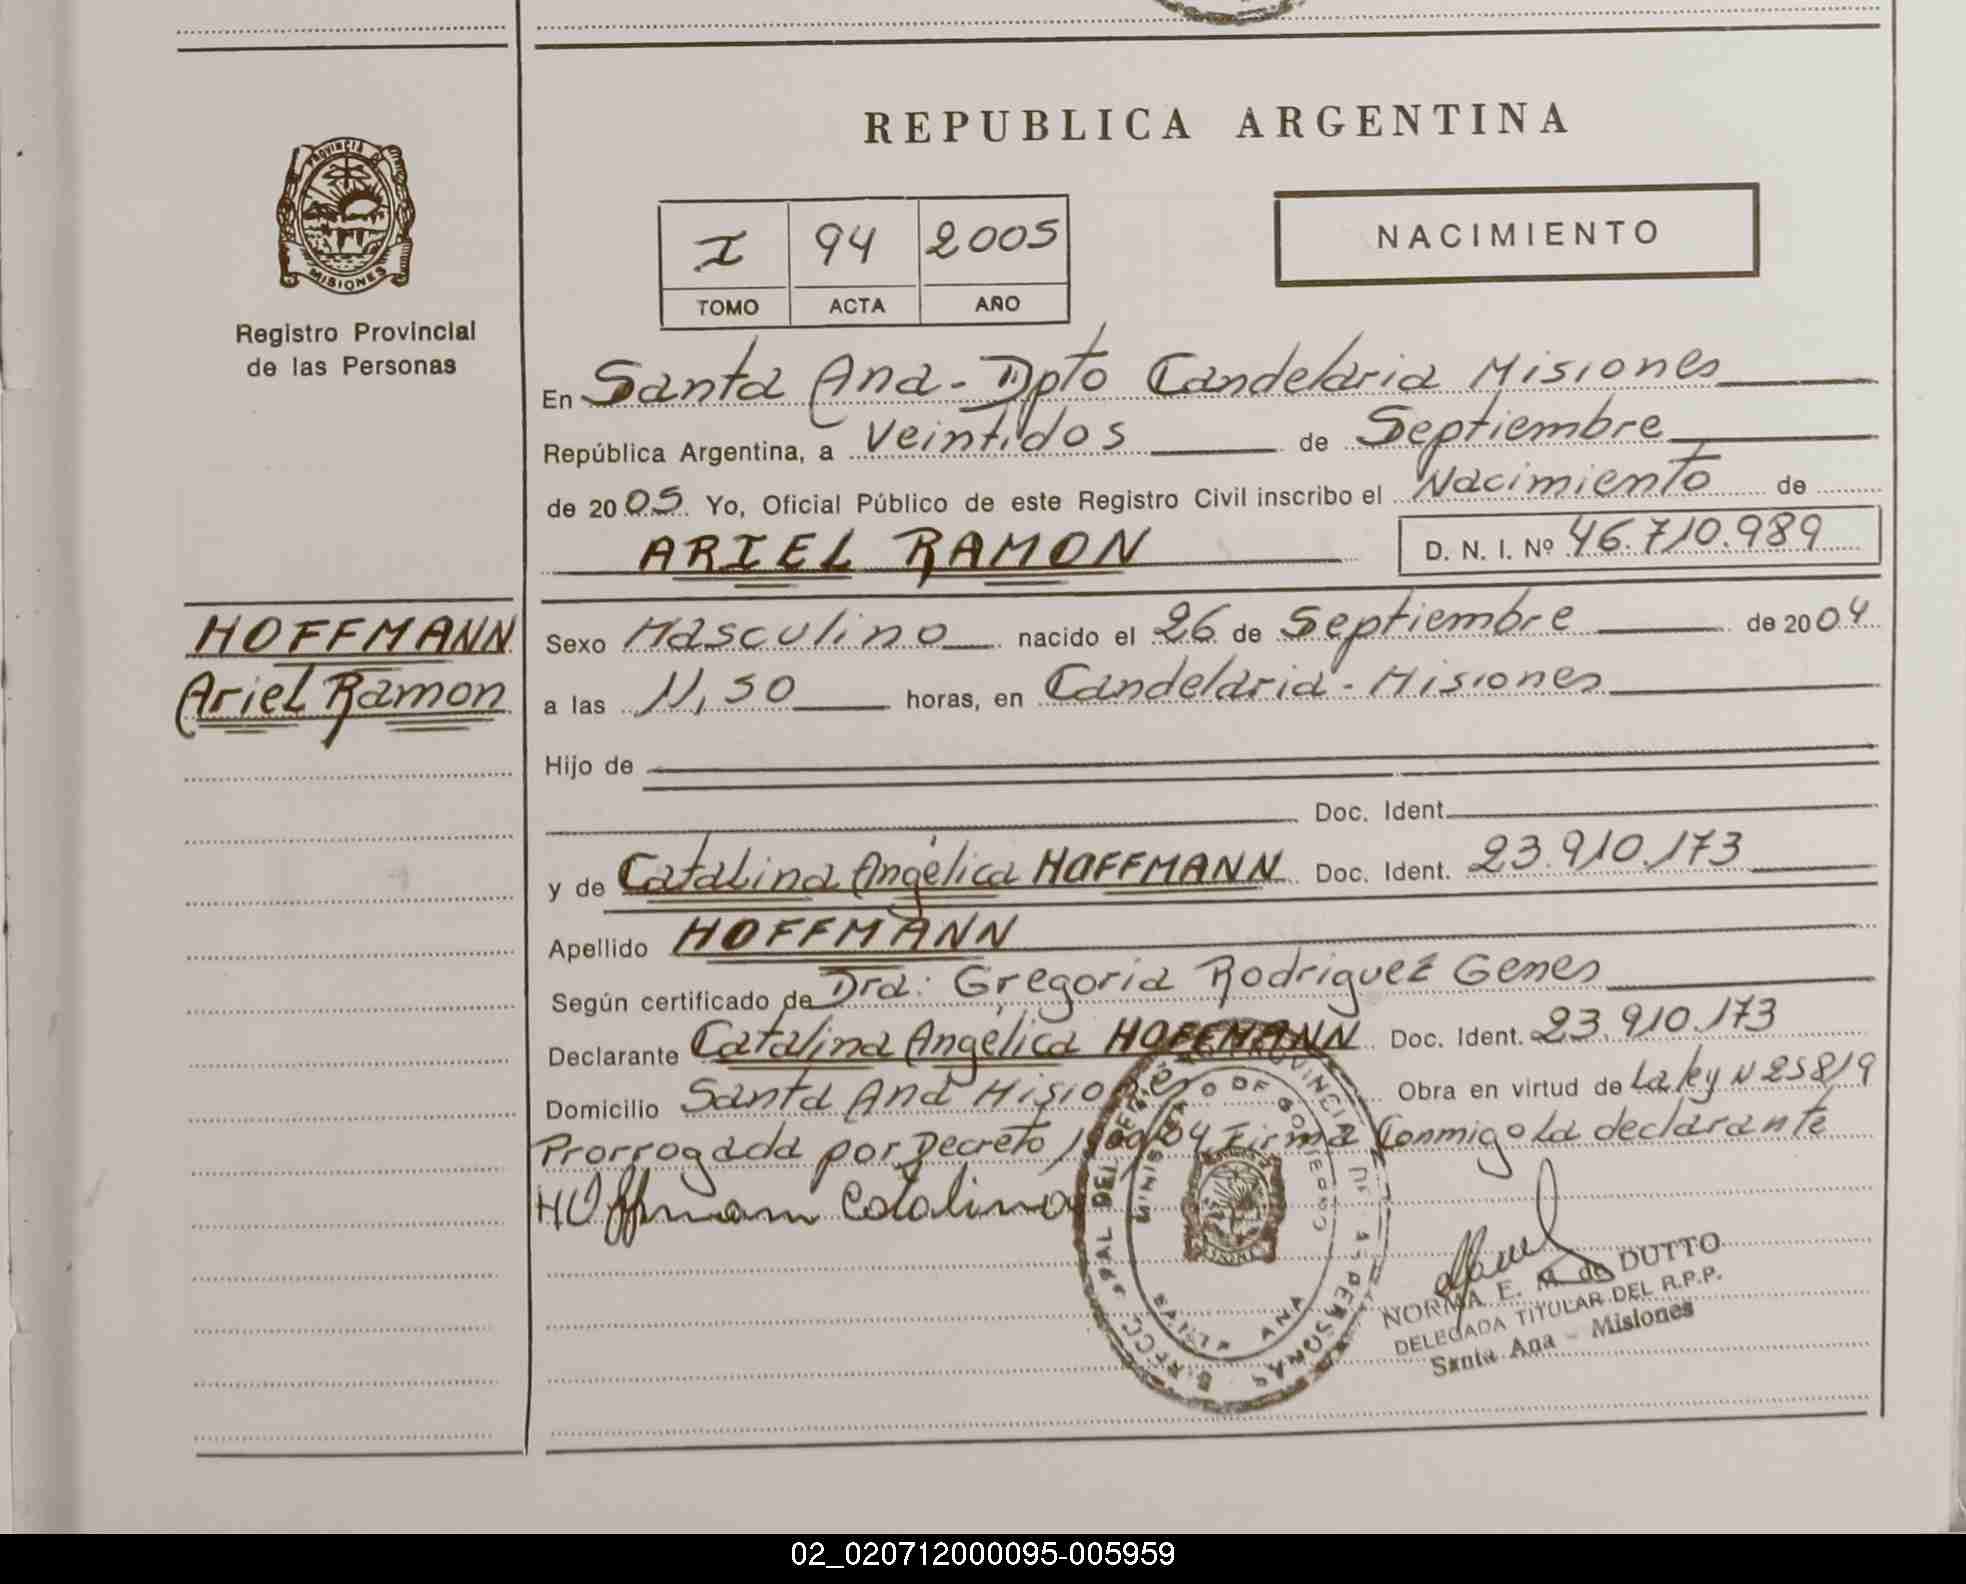 REPUBLICA ARGENTINA
PROVINCIA D
MISIONES
Registro Provincial
de las Personas
I 94 2005
TOMO ACTA AÑO
NACIMIENTO
En Santa Ana - Dpto Candelaria Misiones
República Argentina, a Veintidos de Septiembre
de 2005. Yo, Oficial Público de este Registro Civil inscribo el Nacimiento de
ARIEL RAMON
D. N. I. Nº 46.710.989
HOFFMANN
Ariel Ramon
Sexo Masculino nacido el 26 de Septiembre de 2004
a las 11,50 horas, en Candelaria - Misiones
Hijo de
Doc. Ident.
y de Catalina Angélica HOFFMANN Doc. Ident. 23.910.173
Apellido HOFFMANN
Según certificado de Dra: Gregoria Rodriguez Genes
Declarante Catalina Angélica HOFFMANN Doc. Ident. 23.910.173
Domicilio Santa Ana Misiones Obra en virtud de La ley N 25819
Prorrogada por Decreto Firma Conmigo la declarante
Hoffmann Catalina
MINISTERIO DE GOBIERNO
SANTA ANA
NORMA E. M. de DUTTO
DELEGADA TITULAR DEL R.P.P.
Santa Ana - Misiones
02_020712000095-005959